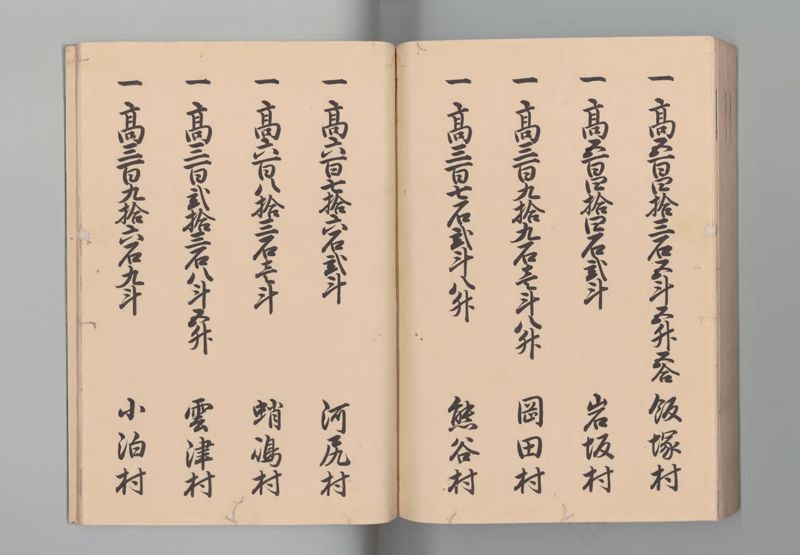 一 高五百四拾三石五斗五升五合 飯塚村
一 高五百四拾四石弐斗 岩坂村
一 高三百九拾九石壱斗八升 岡田村
一 高三百七石弐斗八升 熊谷村
一 高六百七拾六石弐斗 河尻村
一 高六百八拾三石壱斗 蛸嶋村
一 高三百弐拾三石八斗五升 雲津村
一 高三百九拾六石九斗 小泊村